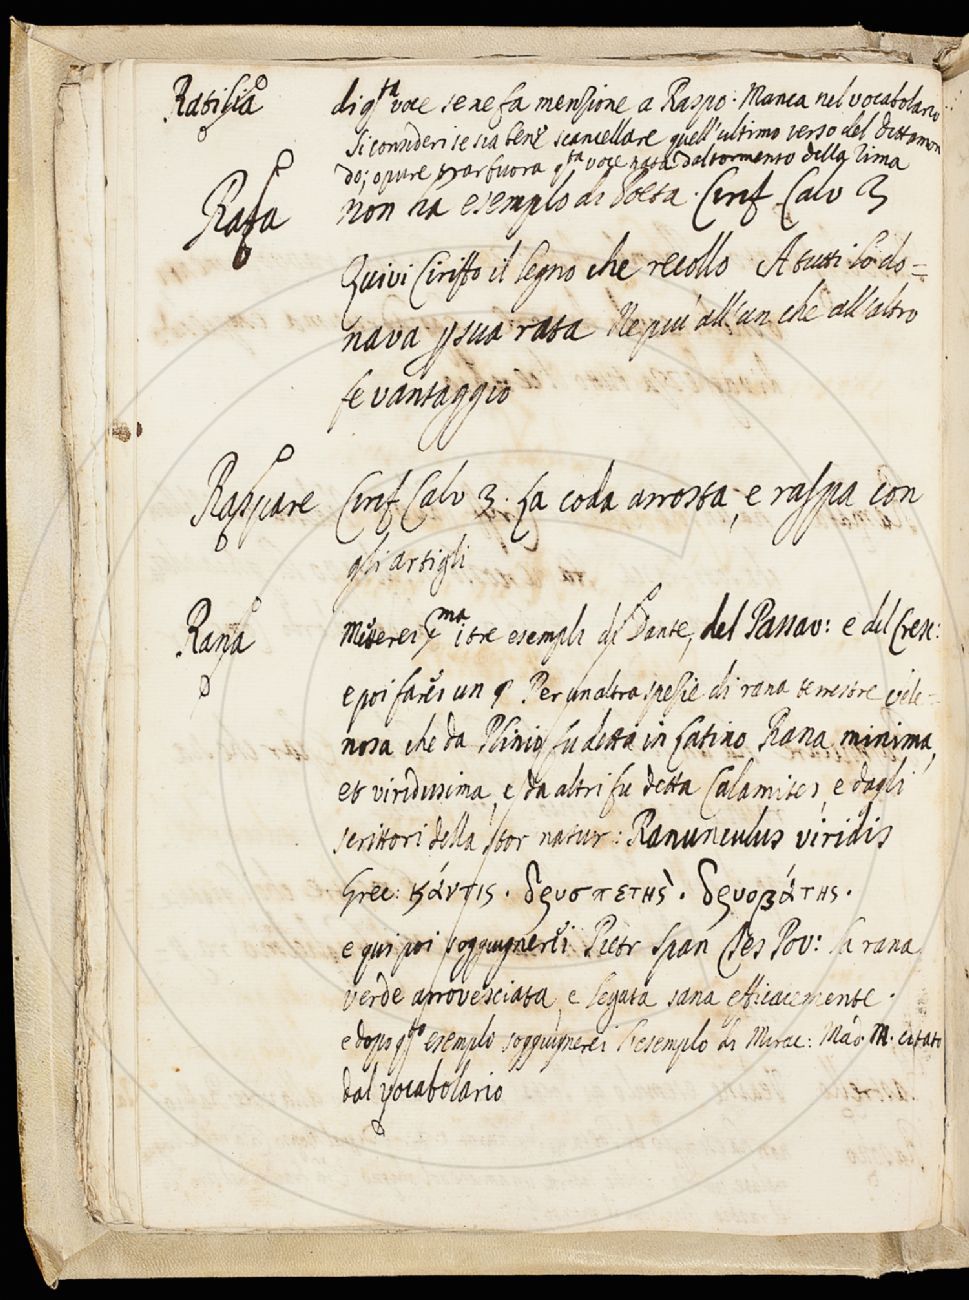 Ratisia di q.ta voce se ne fa menzione a Raspo. Manca nel vocabolario
si consideri se sia bene scancellare quell'ultimo verso del Dittamon
do; opure trar fuora q.ta voce nata dal tormento della Rima
Rata non ha esemplo di Poeta. Cirif. Calv 3
Quivi Ciriffo il legno che recollo A tutti lo do=
nava p sua rata Ne piu all'un che all'altro
fe vantaggio
Raspare Cirif Calv 3. La coda arrosta, e raspa con
gli artigli
Rana Metterei p.ma i tre esempli di Dante, del Passav: e del Cresc:
e poi farei un § Per un altra spezie di rana terrestre vele=
nosa che da Plinio fu detta in latino Rana minima,
et viridissima, e da altri fu detta Calamites, e dagli
scrittori della stor natur: Ranunculus viridis
Grec: κάντις. δρυοπετης. δρυοβάτης.
e qui poi soggiugnerei Pietr Span Tes Pov: la rana
verde arrovesciata, e legata sana efficacemente.
e dopo q.to esemplo soggiugnerei l'esemplo di Mirac: Mad. M. citato
dal vocabolario